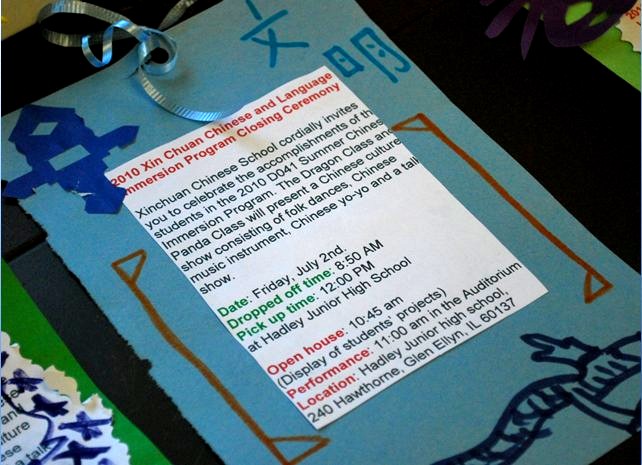 文明
2010 Xin Chuan Chinese and Language
Immersion Program Closing Ceremony
Xinchuan Chinese School cordially invites
you to celebrate the accomplishments of the
students in the 2010 D041 Summer Chinese
Immersion Program. The Dragon Class and
Panda Class will present a Chinese culture
show consisting of folk dances, Chinese
music instrument, Chinese yo-yo and a talk
show.
Date: Friday, July 2nd,
Dropped off time: 8:50 AM
Pick up time: 12:00 PM
at Hadley Junior High School
Open house: 10:45 am
(Display of students' projects)
Performance: 11:00 am in the Auditorium
Location: Hadley Junior high school,
240 Hawthorne, Glen Ellyn, IL 60137